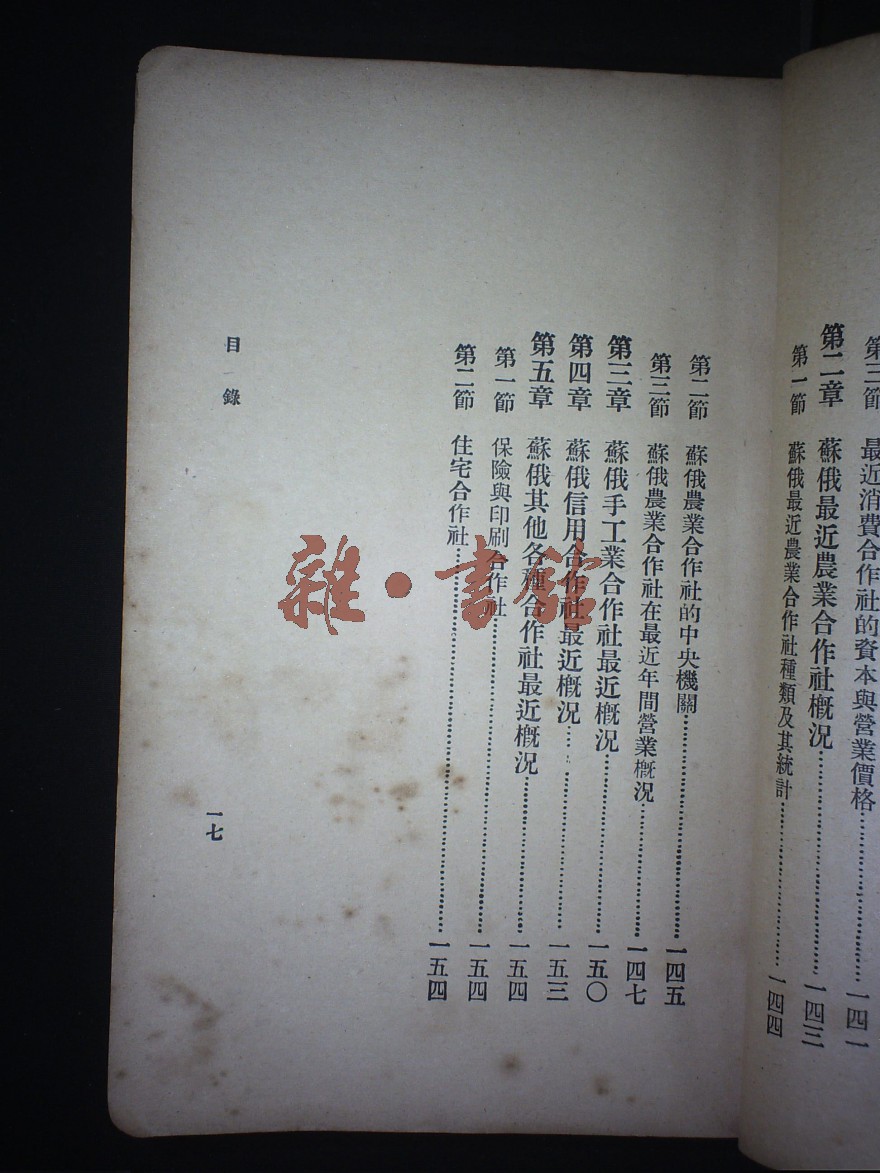 第三節 最近消費合作社的資本與營業價格 一四一
第二章 蘇俄最近農業合作社概況 一四三
第一節 蘇俄最近農業合作社種類及其統計 一四四
第二節 蘇俄農業合作社的中央機關 一四五
第三節 蘇俄農業合作社在最近年間營業概況 一四七
第三章 蘇俄手工業合作社最近概況 一五〇
第四章 蘇俄信用合作社最近概況 一五三
第五章 蘇俄其他各種合作社最近概況 一五四
第一節 保險與印刷合作社 一五四
第二節 住宅合作社 一五四
目錄
一七
雜·書館